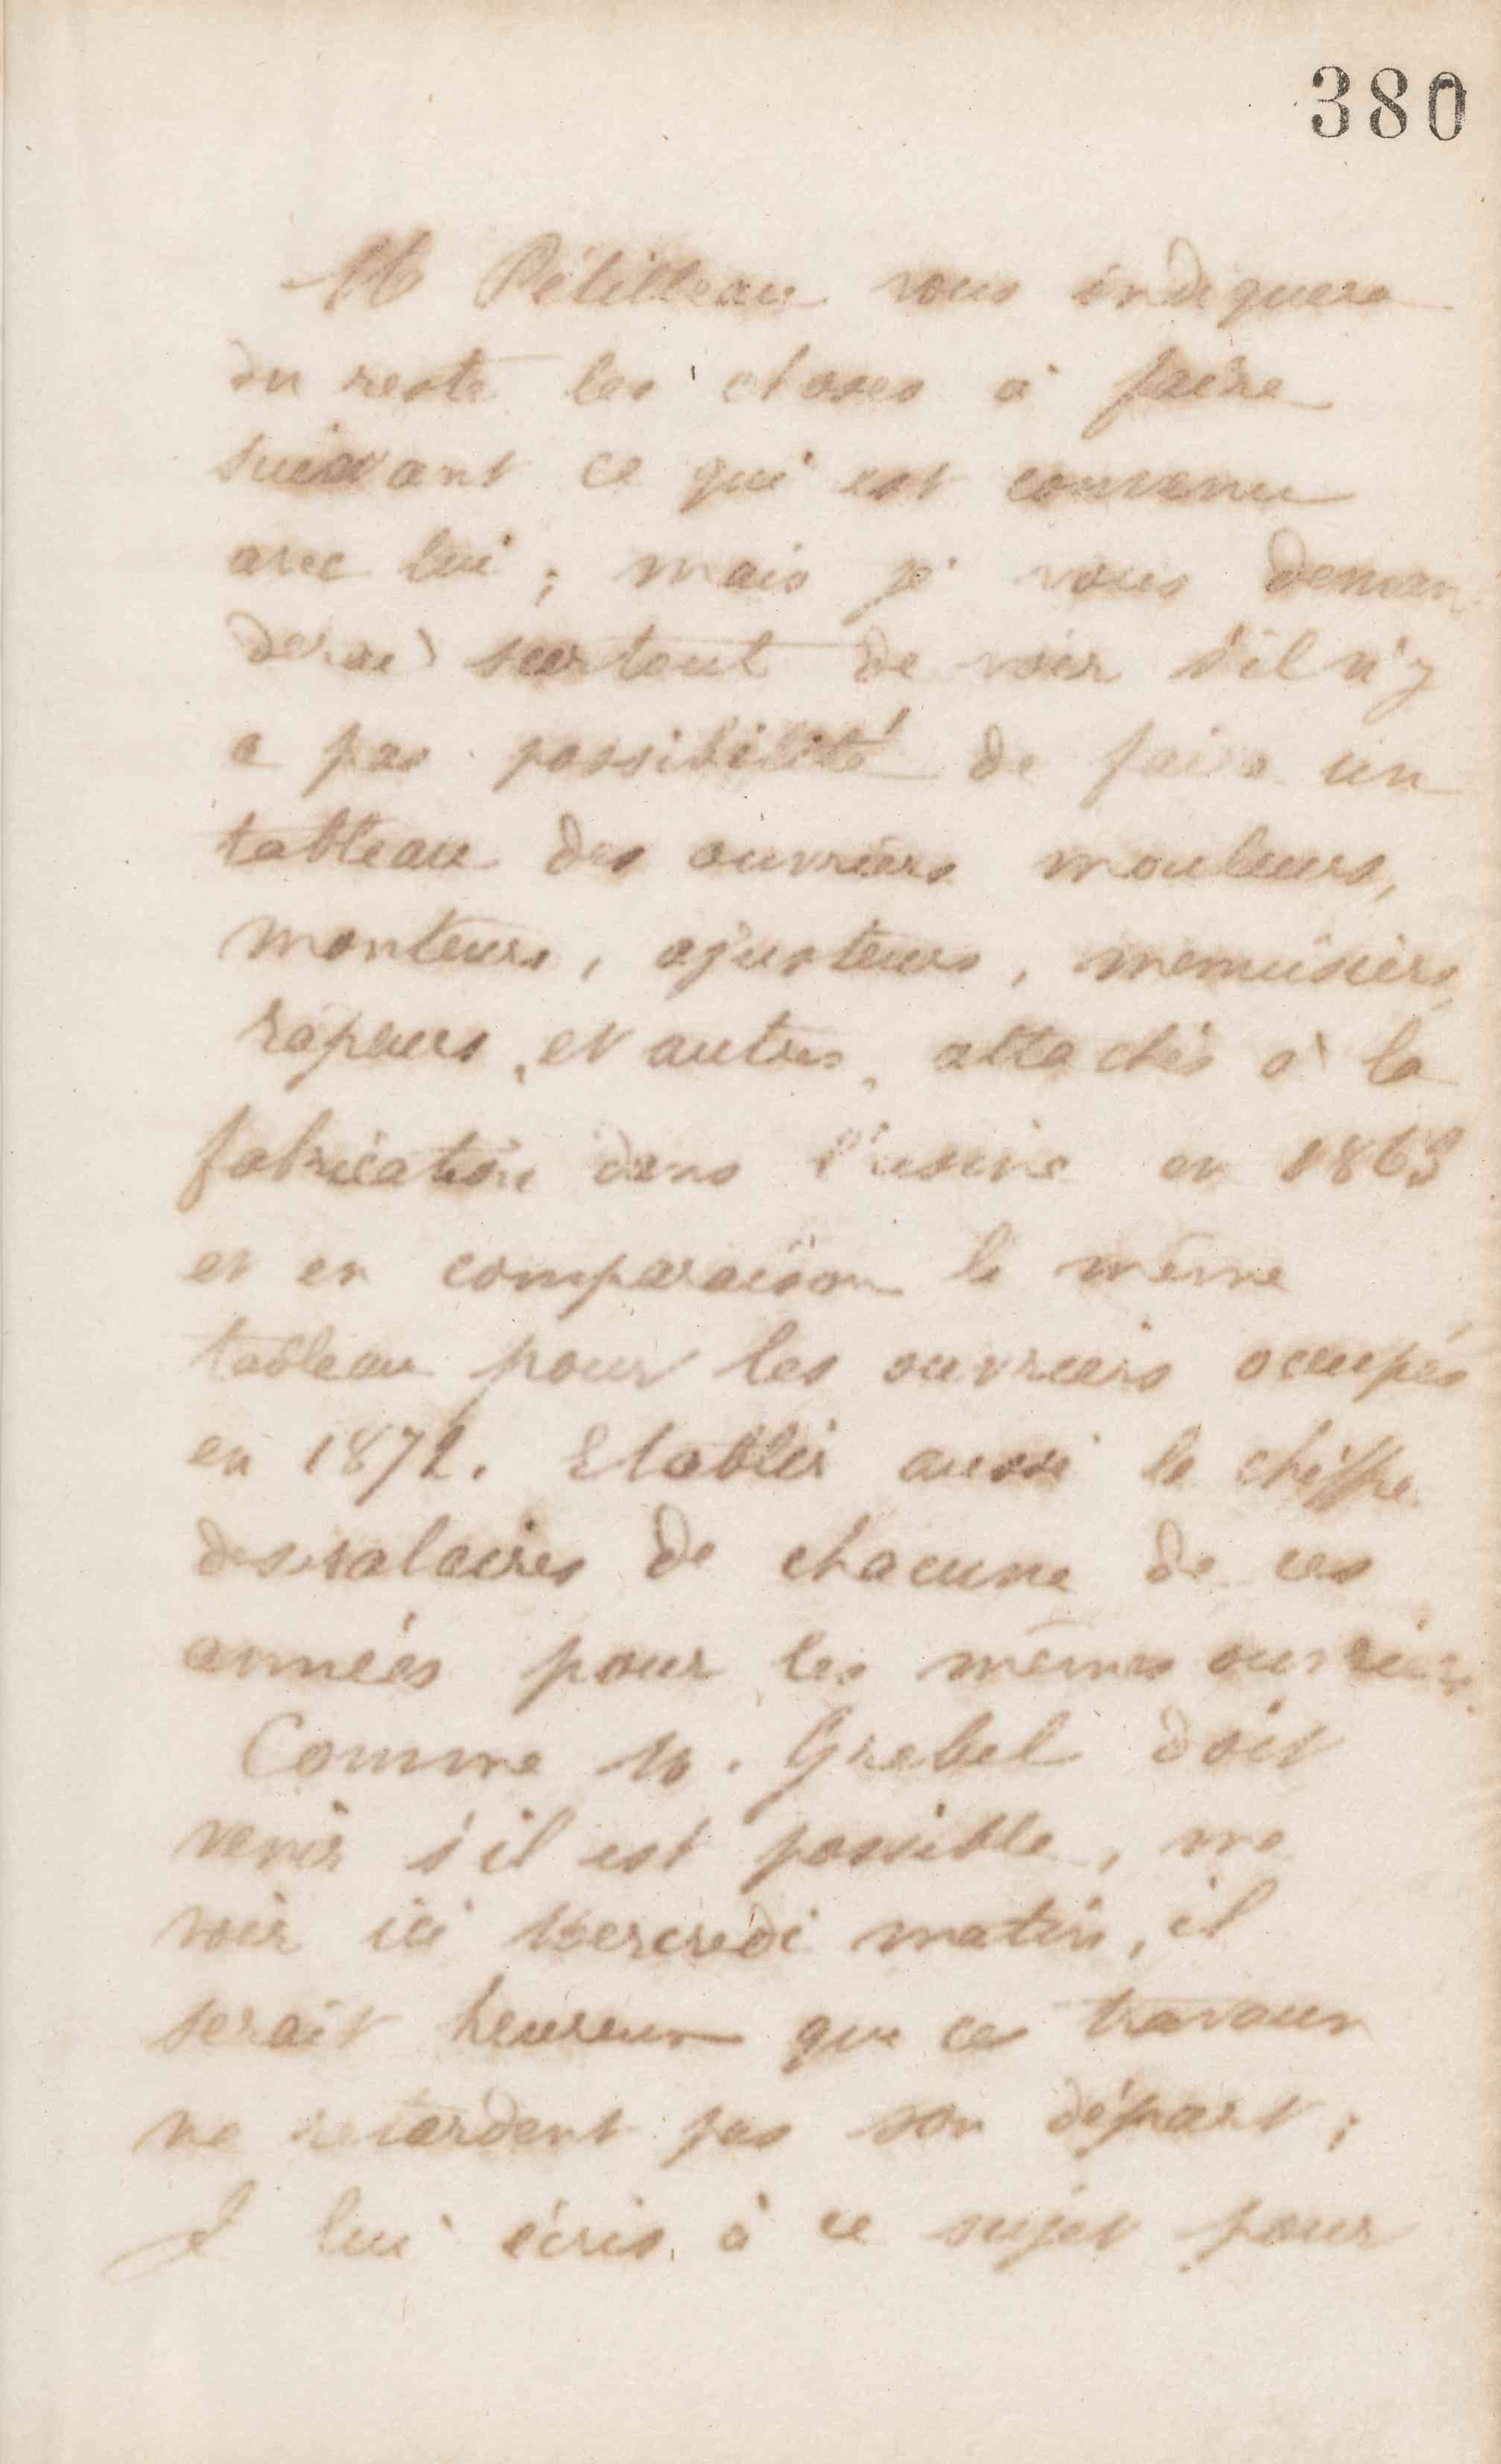 380
M Pétilleau vous indiquera
du reste les choses à faire
suivant ce qui est convenu
avec lui ; mais je vous deman
derai surtout de voir s'il n'y
a pas possibilité de faire un
tableau des ouvriers mouleurs,
monteurs, ajusteurs, menuisiers,
rapeurs, et autres, attachés à la
fabrication dans l'usine en 1863
et en comparaison le même
tableau pour les ouvriers occupés
en 1872. Etablir aussi le chiffre
des salaires de chacune de ces
années pour les mêmes ouvriers.
Comme M. Grebel doit
venir s'il est possible, me
voir ici Mercredi matin, il
serait heureux que ces travaux
ne retardent pas son départ ;
Je lui écris à ce sujet pour